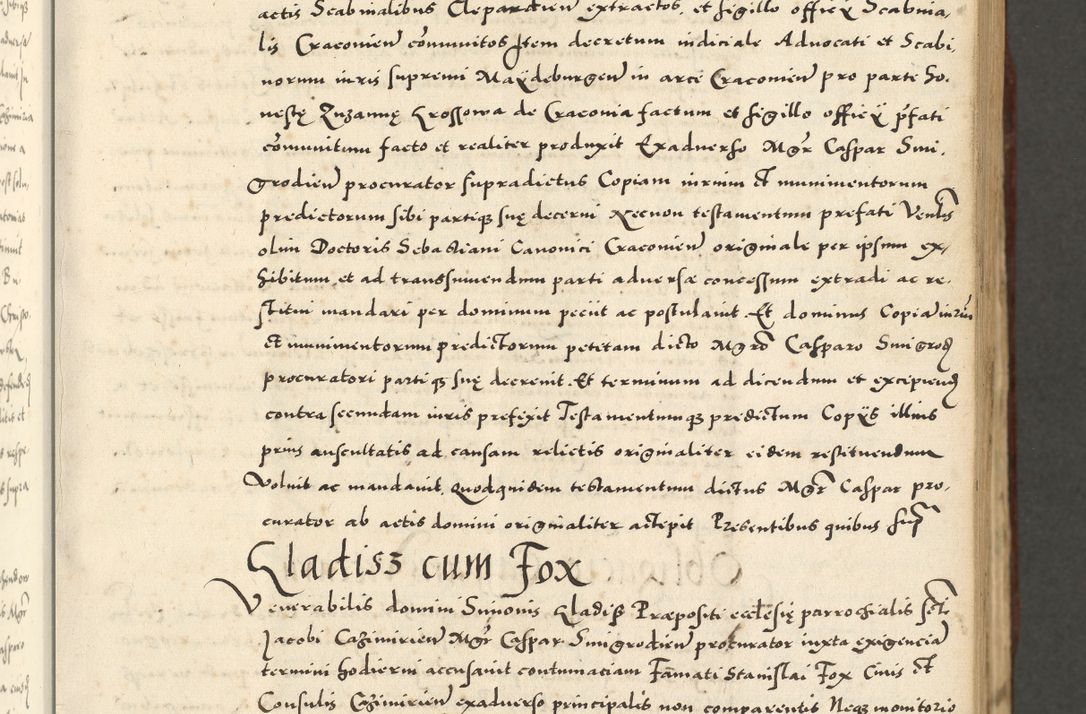 actis Scabinalibus Clepardien extractos, et sigillo officÿ Scabina,
lis Cracovien com̄unitos Item decretum iudiciale Advocati et Scabi,
norum iuris supremi Maÿdeburgen in arce Cracovien pro parte ho,
nestę Zuzannę Krossowa de Cracovia factum et sigillo officÿ p̄fati
com̄unitum facto et realiter produxit Exadverso Mgr̄ Caspar Smi,
grodien procurator supradictus Copiam iurium et munimentorum
predictorum sibi partiq3 suę decerni Necnon testamentum prefati Venlis
olim Doctoris Sebastiani Canonici Cracovien originale per ipsum ex,
hibitum et ad transsumendum parti adversæ concessum extradi ac re,
stitui mandari per dominum peciit ac postulavit. Et dominus Copiā iuriū
et munimentorum predictorum petitam dicto Mgrō Casparo Smigrod
procuratori partiq3 suę decrevit. Et terminum ad dicendum et excipiend
contra secundam iuris prefixit Testamentumq3 predictum Copÿs illius
prius auscultatis ad causam relictis originaliter eidem restituendum
Voluit ac mandavit, Quodquidem testamentum dictus Mgr̄ Caspar pro,
curator ab actis domini originaliter accepit Presentibus quibus sup̄
Gladisz cum Fox
Venerabilis domini Simonis Gladiß Præpositi ecclesię parrochialis scti
Jacobi Cazimirien Mgr̄ Caspar Smigrodien procurator iuxta exigenciā
termini hodierni accusavit contumaciam Famati Stanislai Fox Civis et
Consulis Cazimirien exadverso principalis non comparentis Neq3 monitorio